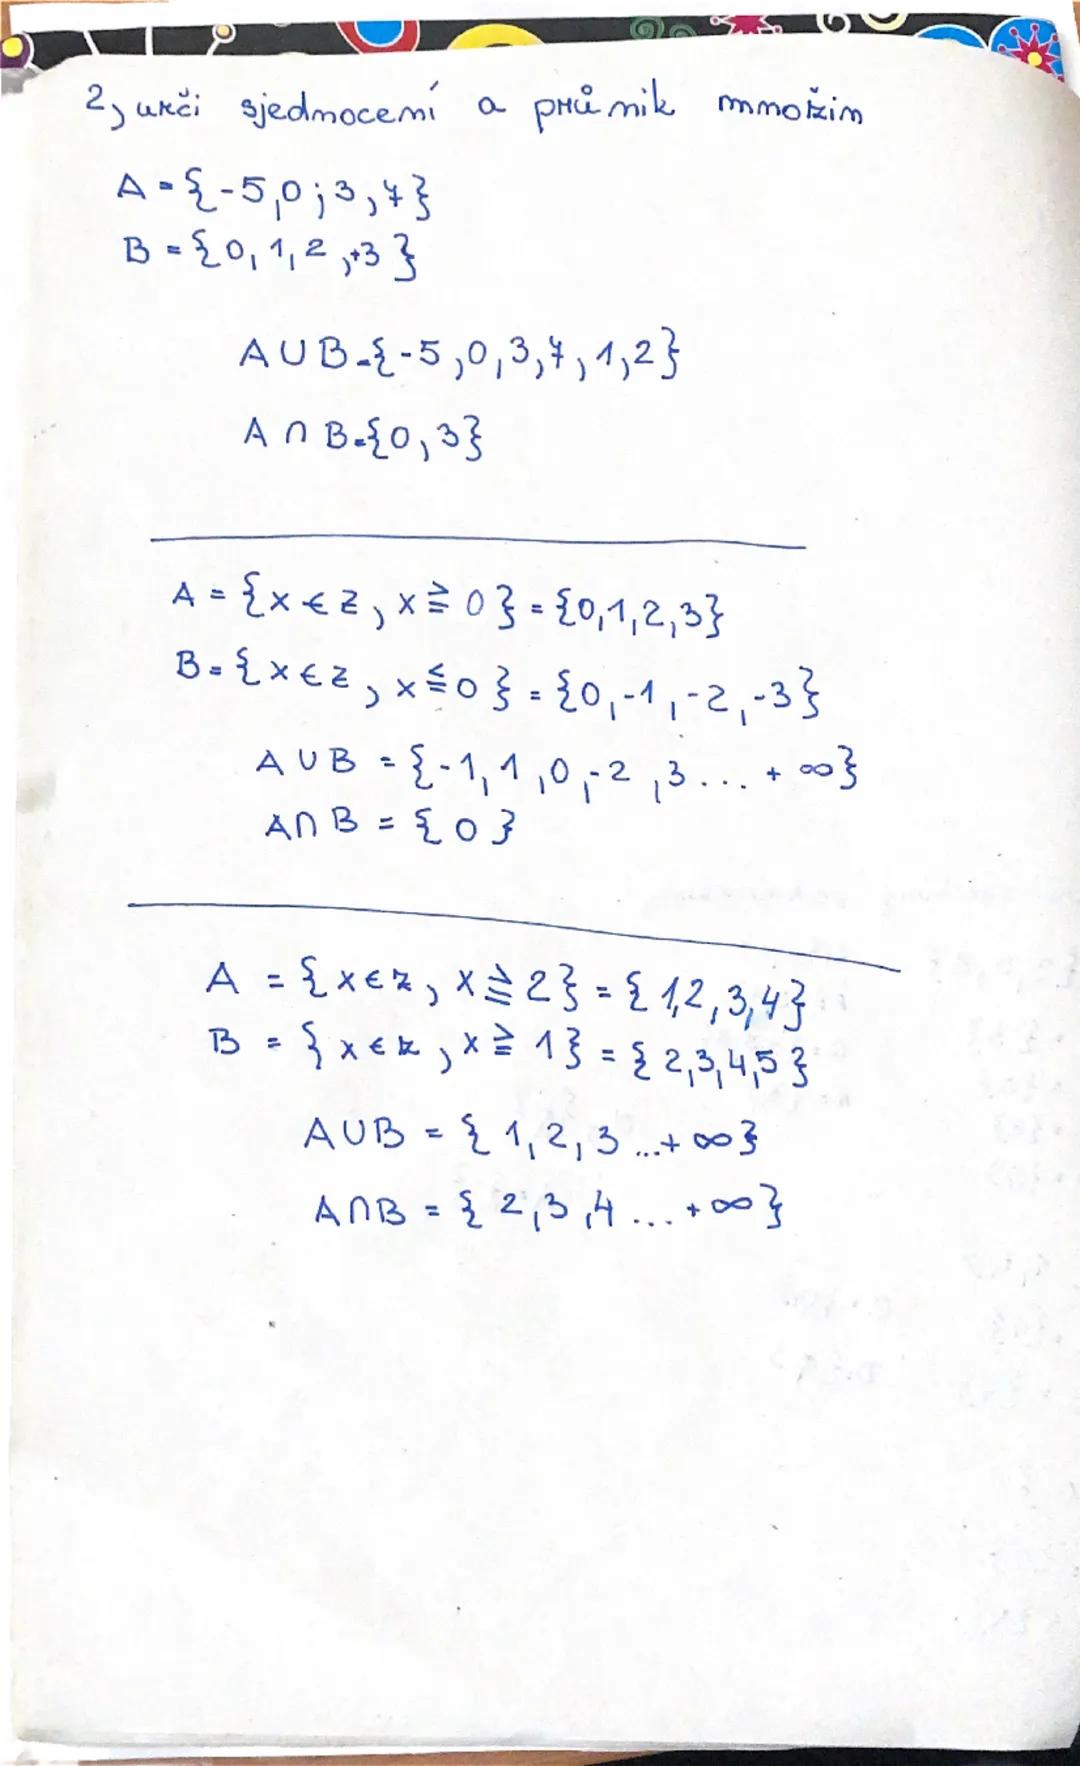 2, urči sjednocení a průnik množin
A = {-5,0;3,7}
B = {0,1,2,+3}
A∪B={-5,0,3,7,1,2}
A∩B={0,3}
A = {x∈Z, x≧0} = {0,1,2,3}
B = {x∈Z, x≦0} = {0,-1,-2,-3}
A∪B = {-1,1,0,-2,3... + ∞}
A∩B = {0}
A = {x∈Z, x≧2} = {1,2,3,4}
B = {x∈Z, x≧1} = {2,3,4,5}
A∪B = {1,2,3...+∞}
A∩B = {2,3,4...+∞}